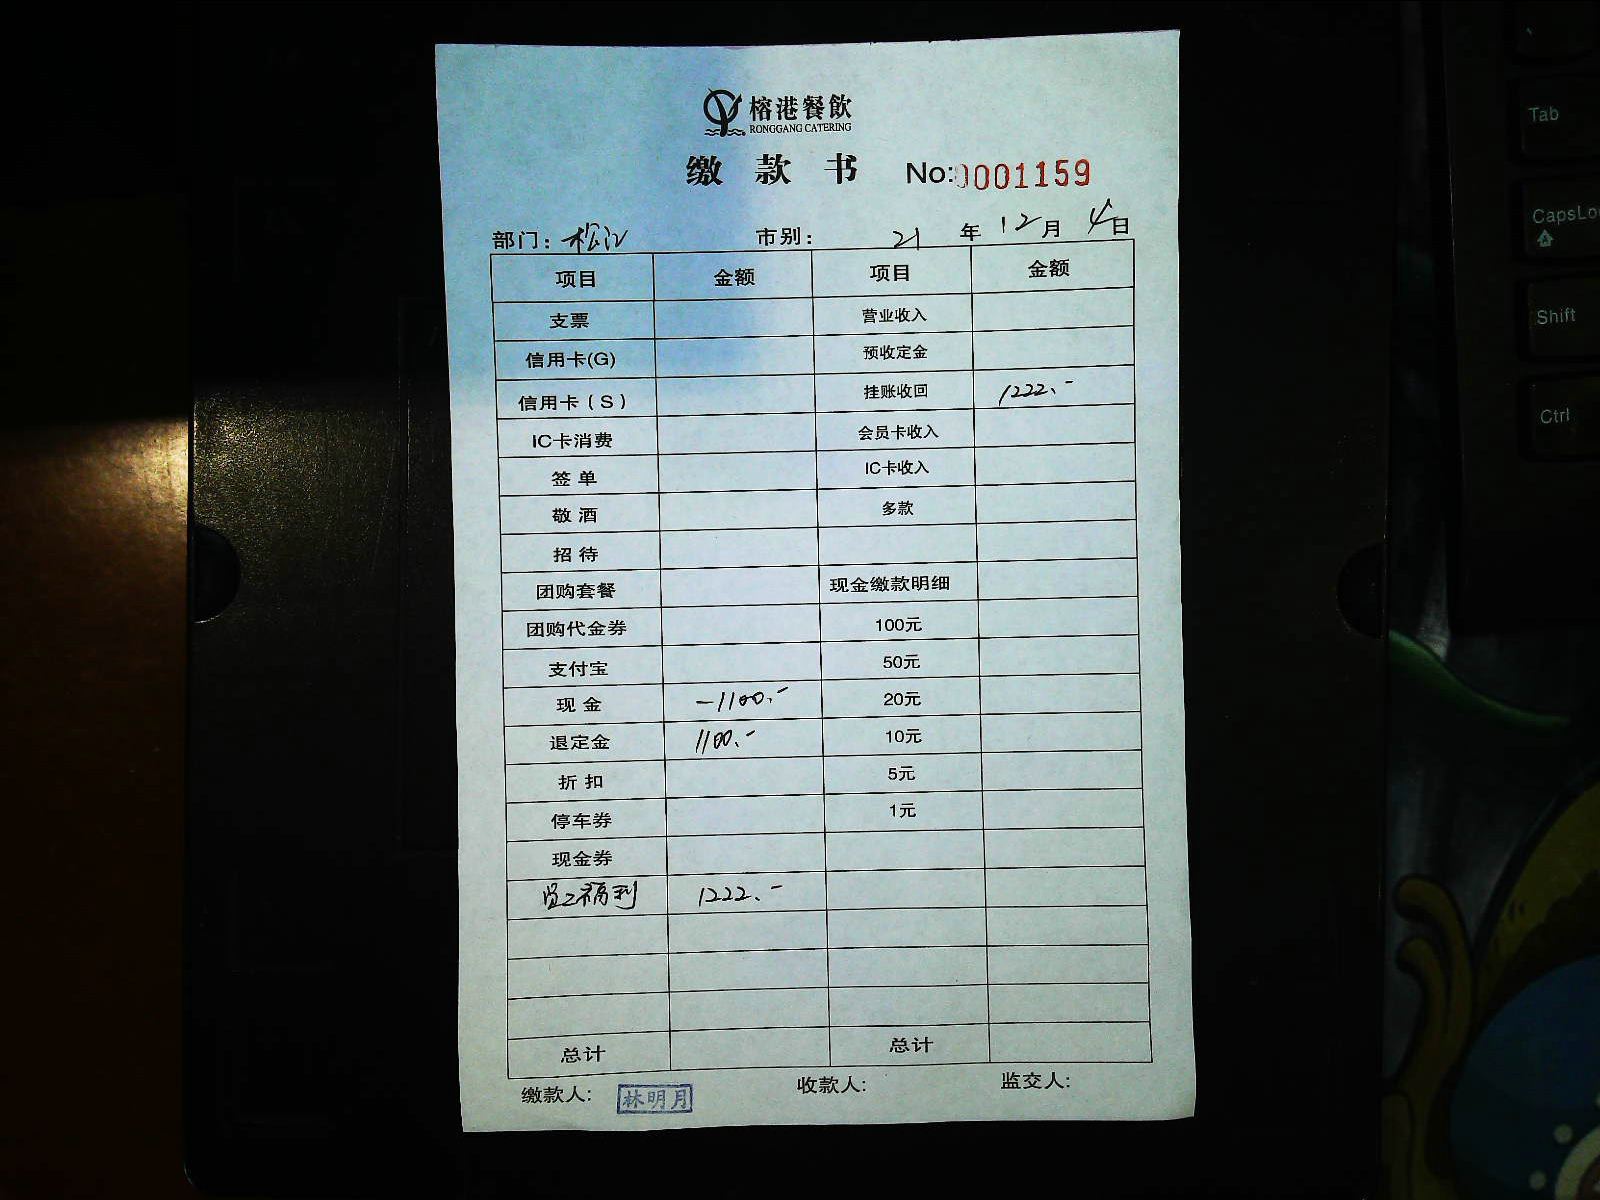 榕港餐飲
RONGGANG CATERING
缴款书 No:0001159
部门：松江 市别： 21年12月4日
项目 金额 项目 金额
支票 营业收入
信用卡(G) 预收定金
信用卡（S） 挂账收回 1222.-
IC卡消费 会员卡收入
签单 IC卡收入
敬酒 多款
招待
团购套餐 现金缴款明细
团购代金券 100元
支付宝 50元
现金 -1100.- 20元
退定金 1100.- 10元
折扣 5元
停车券 1元
现金券
员工福利 1222.-
总计 总计
缴款人: 林明月 收款人: 监交人:
Tab
CapsLo
Shift
Ctrl